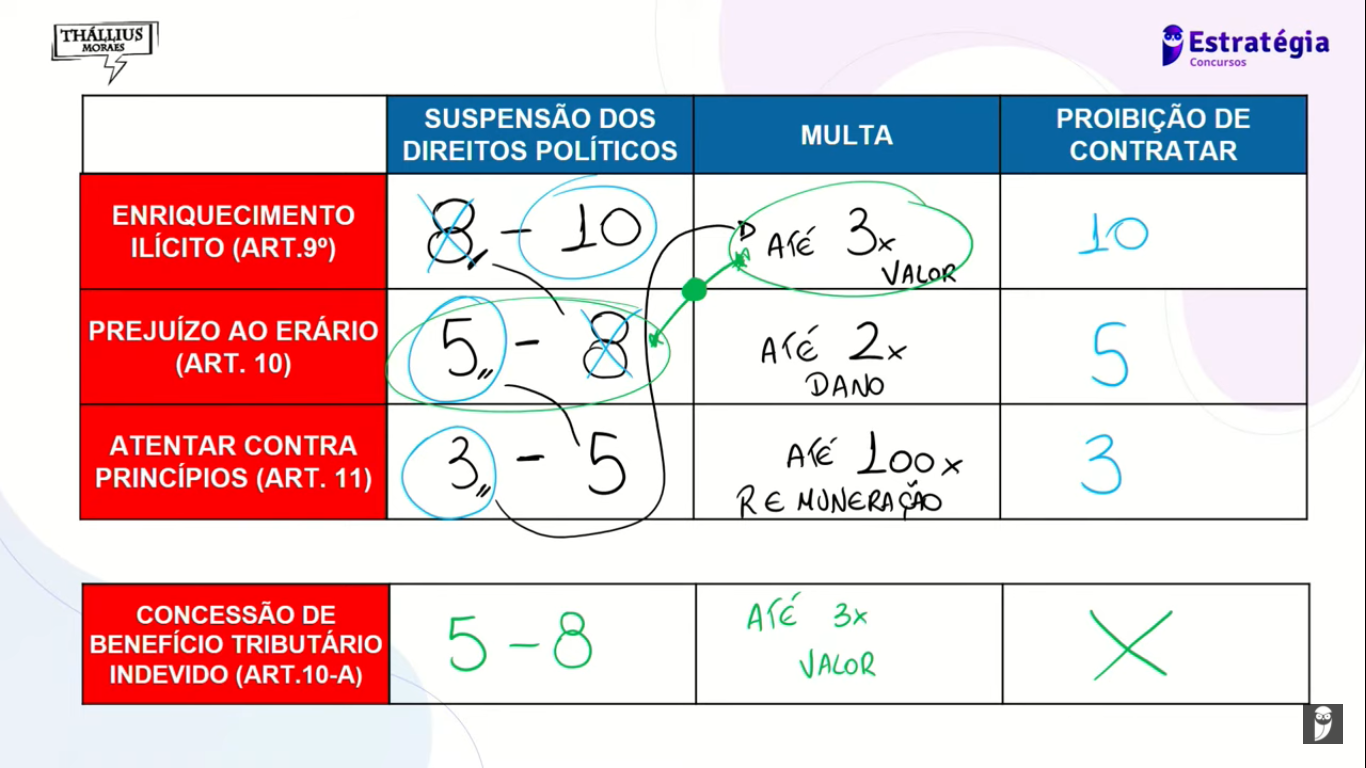 THÁLLIUS
MORAES
Estratégia
Concursos
SUSPENSÃO DOS
DIREITOS POLÍTICOS
MULTA
PROIBIÇÃO DE
CONTRATAR
ENRIQUECIMENTO
ILÍCITO (ART.9º)
8 - 10
ATÉ 3x
VALOR
10
PREJUÍZO AO ERÁRIO
(ART. 10)
5 - 8
ATÉ 2x
DANO
5
ATENTAR CONTRA
PRINCÍPIOS (ART. 11)
3 - 5
ATÉ 100x
REMUNERAÇÃO
3
CONCESSÃO DE
BENEFÍCIO TRIBUTÁRIO
INDEVIDO (ART.10-A)
5 - 8
ATÉ 3x
VALOR
X